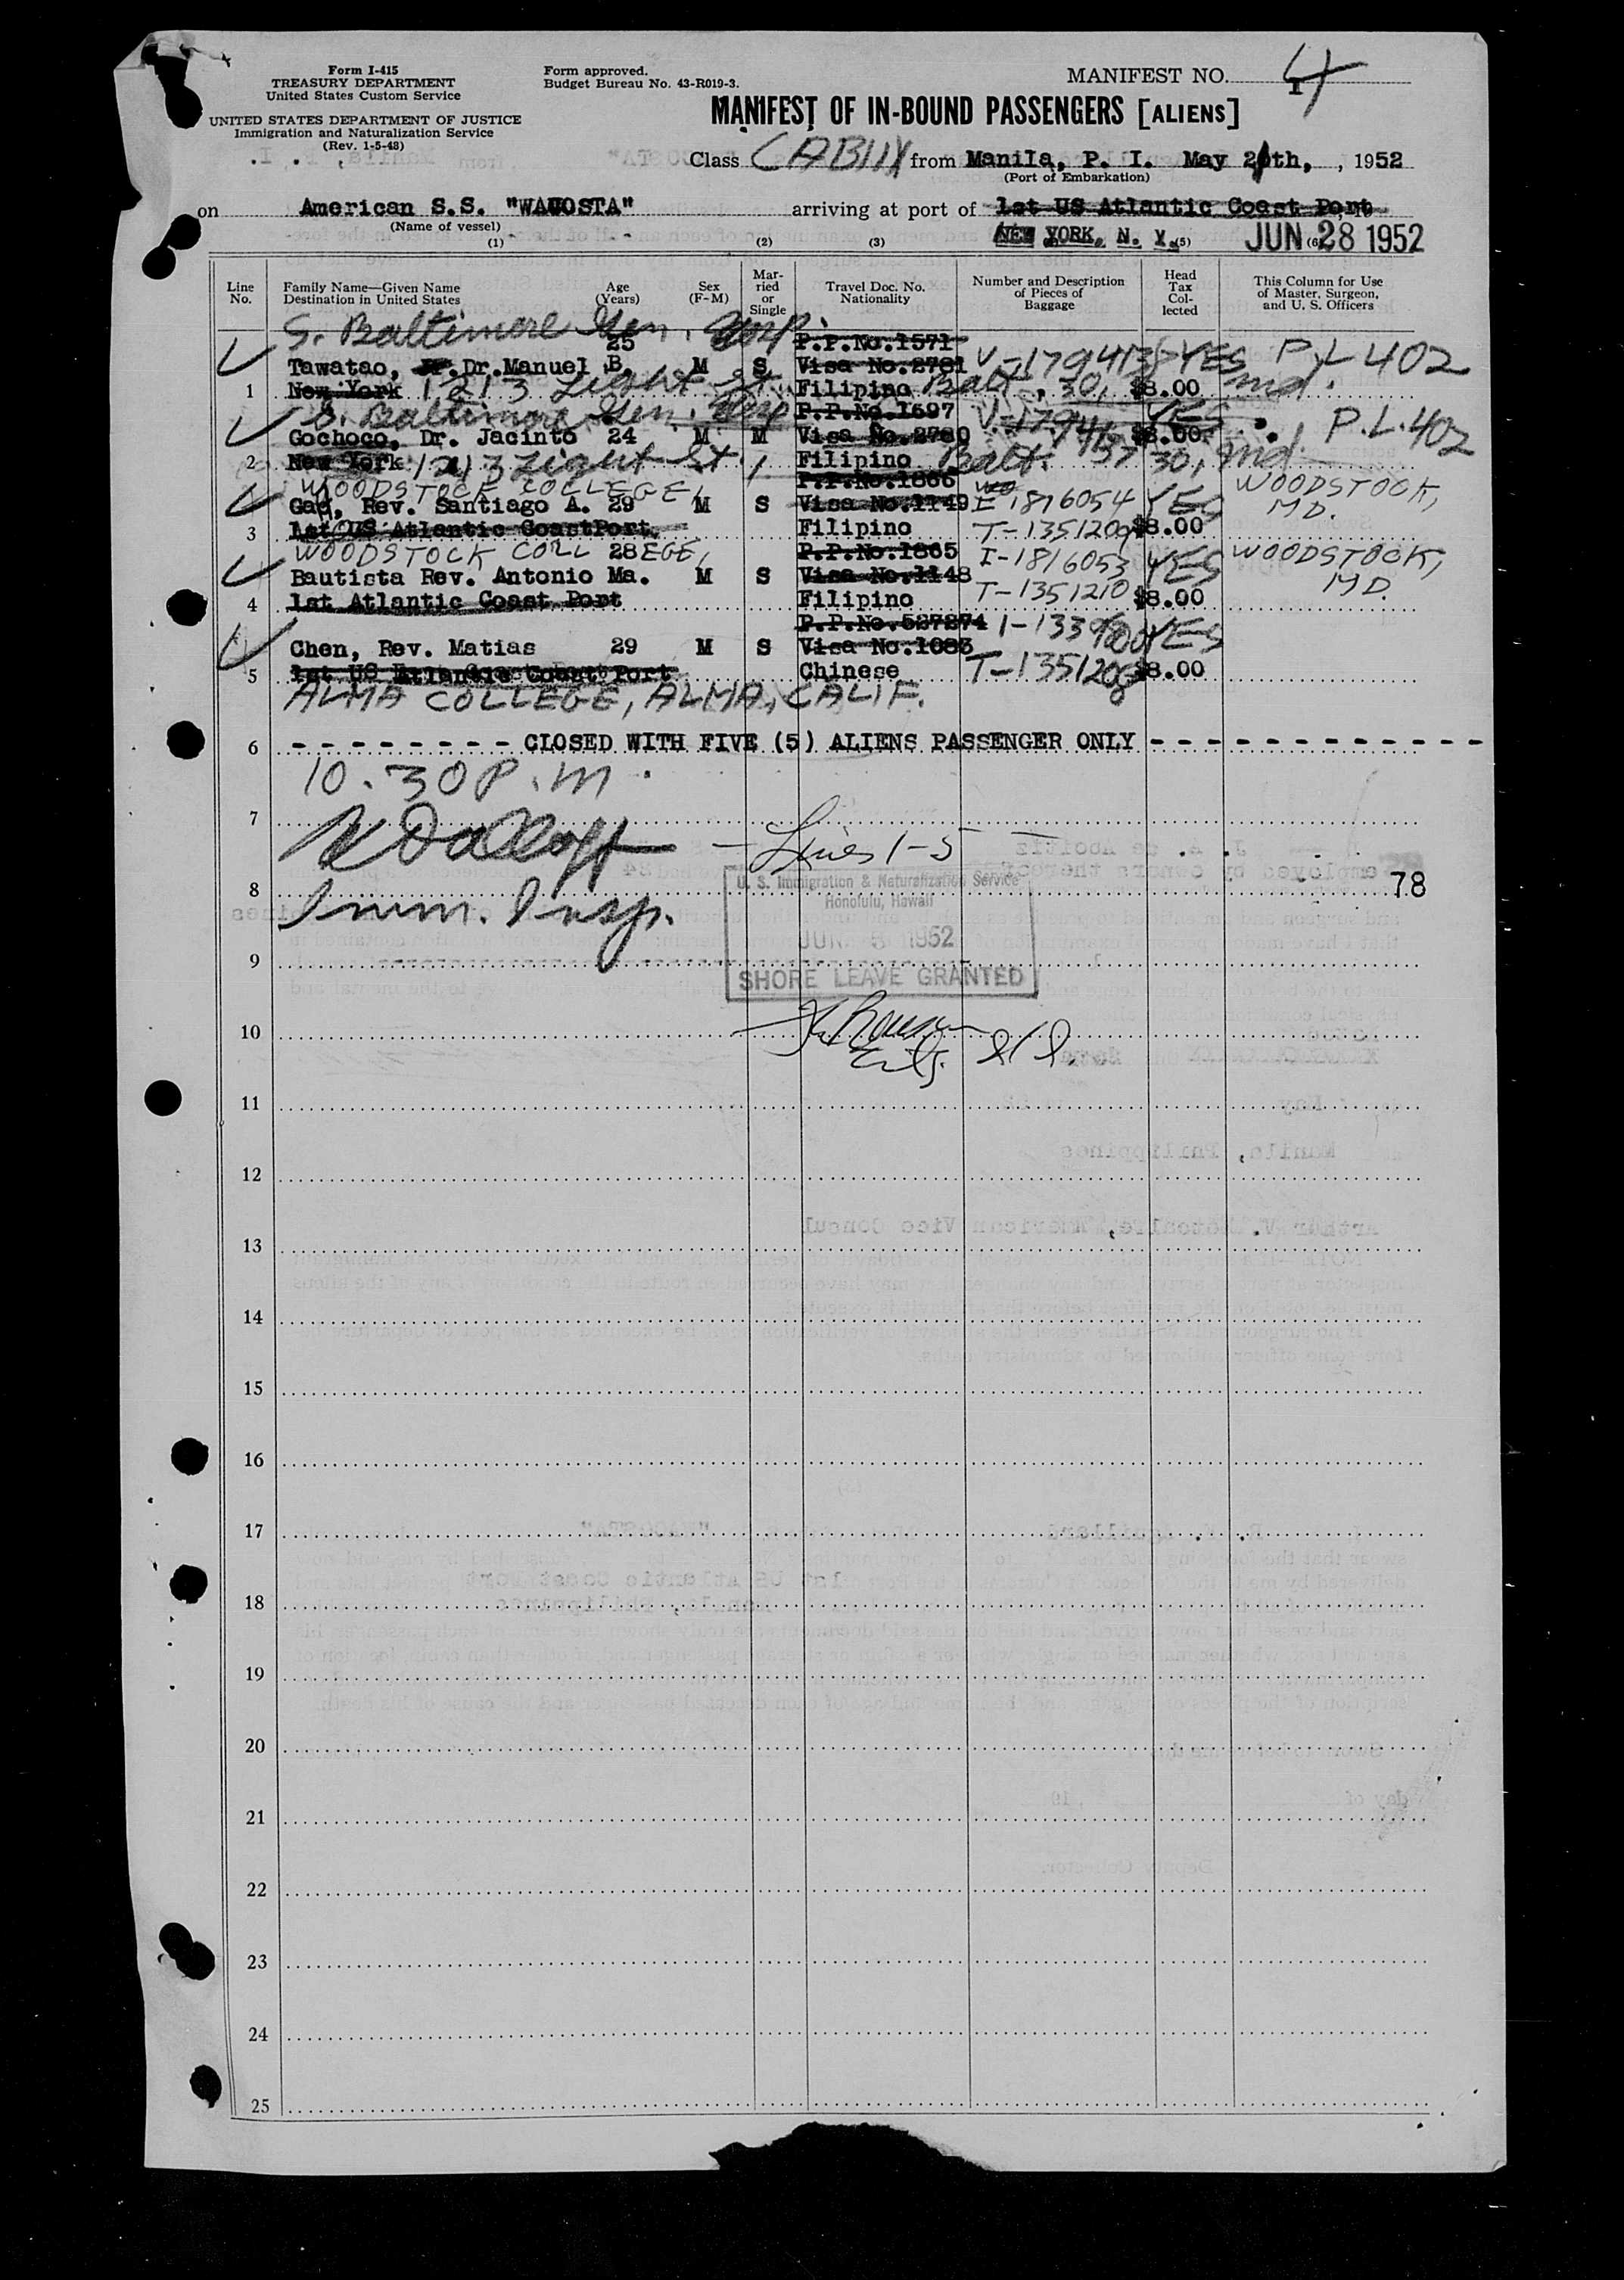 Form I-415
TREASURY DEPARTMENT
United States Custom Service
UNITED STATES DEPARTMENT OF JUSTICE
Immigration and Naturalization Service
(Rev. 1-5-48)
Form approved.
Budget Bureau No. 43-R019-3.
MANIFEST NO. 4
MANIFEST OF IN-BOUND PASSENGERS [ALIENS]
Class CABIN from Manila, P. I. May 2 th, , 1952
(Port of Embarkation)
on American S.S. "WACOSTA" arriving at port of 1st US Atlantic Coast Port
(Name of vessel)
NEW YORK, N. Y. JUN 28 1952
(1) (2) (3) (5) (6)
Line No.
Family Name—Given Name Destination in United States
Age (Years)
Sex (F-M)
Married or Single
Travel Doc. No. Nationality
Number and Description of Pieces of Baggage
Head Tax Collected
This Column for Use of Master, Surgeon, and U. S. Officers
S. Baltimore Gen. Hosp.
25 P.P.No.1571
Tawatao, Jr. Dr.Manuel B. M S Visa No.2781 V-179413 YES P.L 402
1 New York 1213 Light St. Filipino Balt., 30, $8.00 Md.
S. Baltimore Gen. Hosp P.P.No.1597 YES
Gochoco, Dr. Jacinto 24 M M Visa No.2780 $8.00 P.L.402
2 New York 1213 Light St. Filipino Balt. 30, Md.
WOODSTOCK COLLEGE, P.P.No.1866 WOODSTOCK,
Gad, Rev. Santiago A. 29 M S Visa No.1149 I-1816054 YES MD.
3 1st US Atlantic CoastPort Filipino T-1351209 $8.00
WOODSTOCK COLLEGE, 28 P.P.No.1865 I-1816053 YES WOODSTOCK,
Bautista Rev. Antonio Ma. M S Visa No.1148 T-1351210 MD.
4 1st Atlantic Coast Port Filipino $8.00
P.P.No.527274 YES
Chen, Rev. Matias 29 M S Visa No.1083
5 1st US Atlantic Coast Port Chinese T-1351208 $8.00
ALMA COLLEGE, ALMA, CALIF.
6 - - - - - - - - CLOSED WITH FIVE (5) ALIENS PASSENGER ONLY - - - - - - - - - - - - -
10.30 P.M.
7
Lines 1-5
8 78
Imm. Insp.
U. S. Immigration & Naturalization Service
Honolulu, Hawaii
JUN 8 1952
9
SHORE LEAVE GRANTED
10
11
12
13
14
15
16
17
18
19
20
21
22
23
24
25